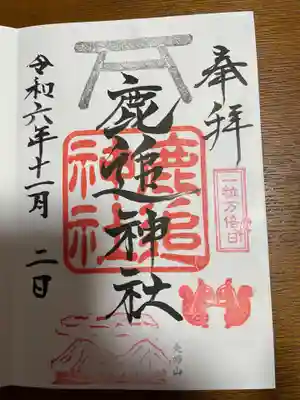 奉拝
一粒万倍日
鹿追神社
鹿追神社
令和六年十一月二日